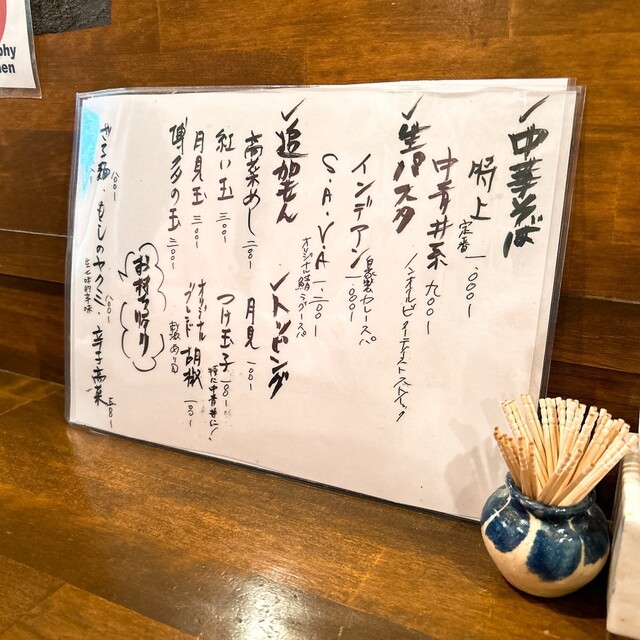 中華そば
特上 定番 一、〇〇〇
中青井系 九〇〇
生パスタ
ノンオイルビィーテイストスパイック
インデアン 一、八〇〇
自家製カレースパ
S・A・V・A 一、二〇〇
オリジナル鯖ラグースパ
追加もん
高菜めし 二〇〇
紅い玉 三〇〇
月見玉 三〇〇
博多の玉 三〇〇
トッピング
月見 一〇〇
つけ玉子 一八〇
特に中青井に!
オリジナルブレンド 胡椒 一〇〇
お持ち帰り
八〇〇
もしのヤクミ
八〇〇
辛子高菜 五八〇
phy
en